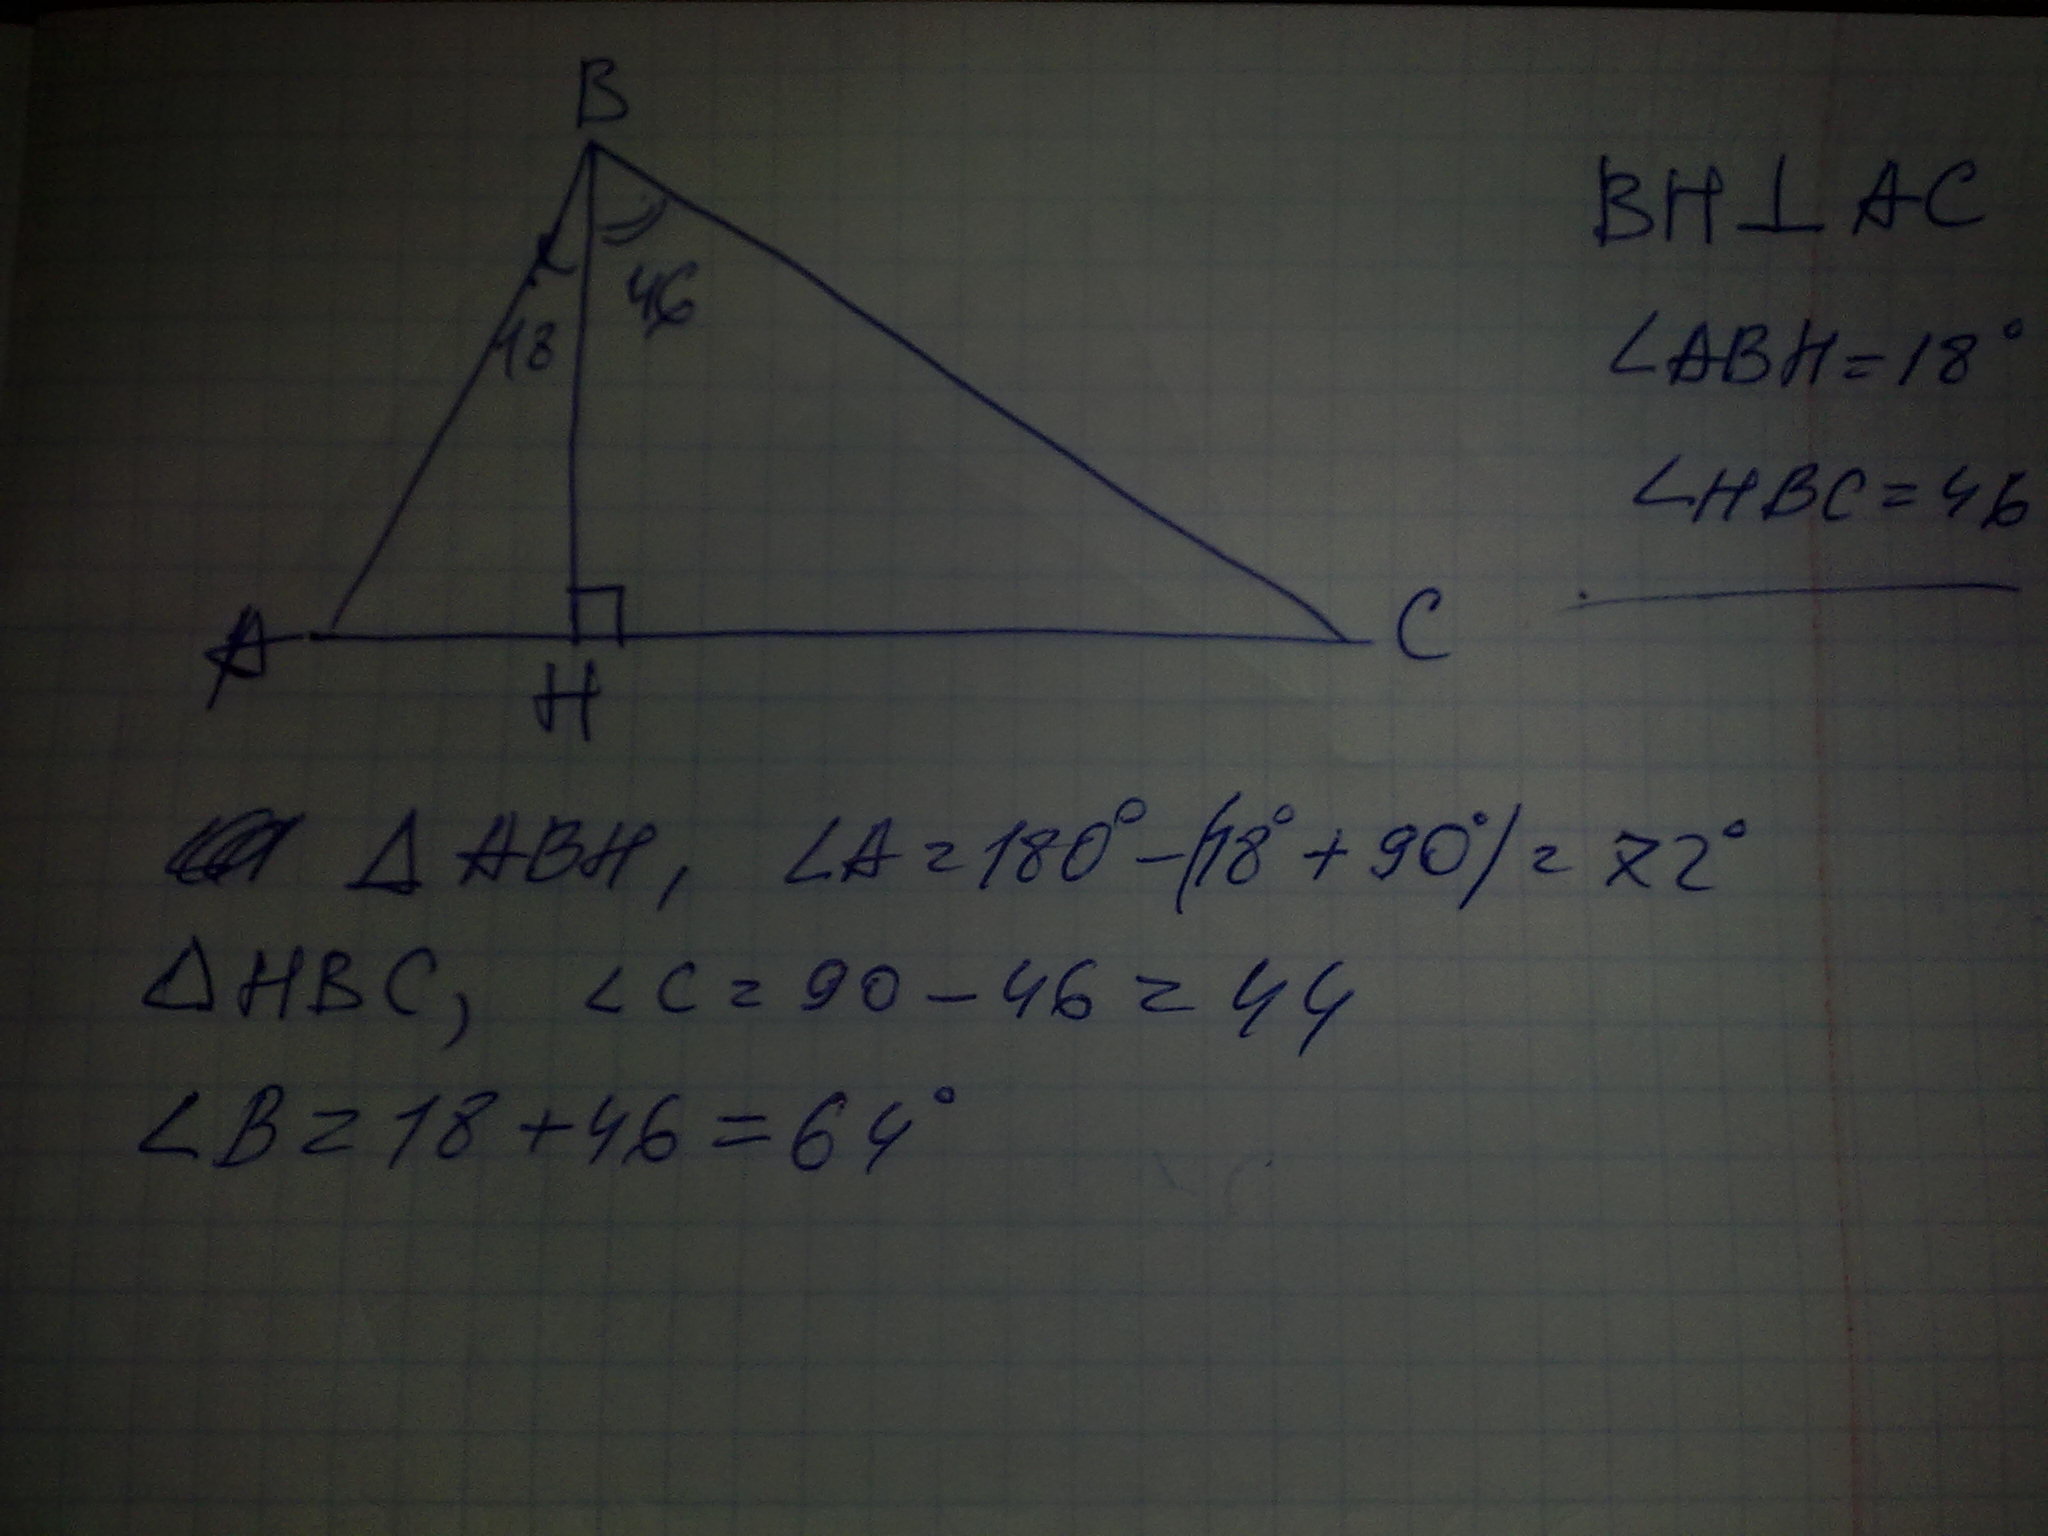 B
18
46
A
H
C
BH⊥AC
∠ABH=18°
∠HBC=46
△ABH, ∠A=180°-(18°+90°)=72°
△HBC, ∠C=90-46=44
∠B=18+46=64°